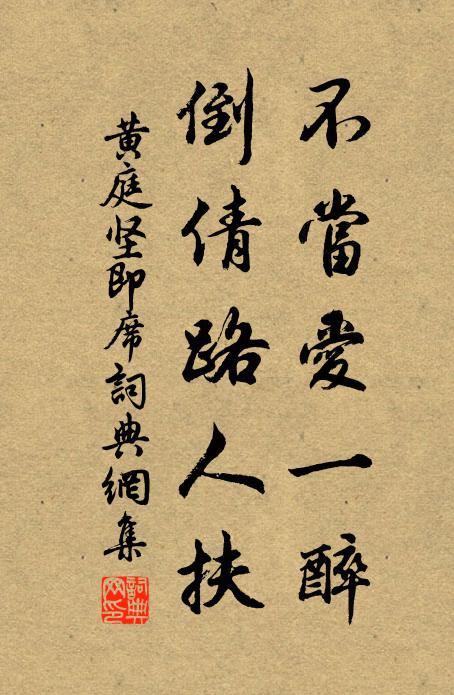 不當愛一醉
倒倩路人扶
黄庭坚即席詞典網集
詞典網印